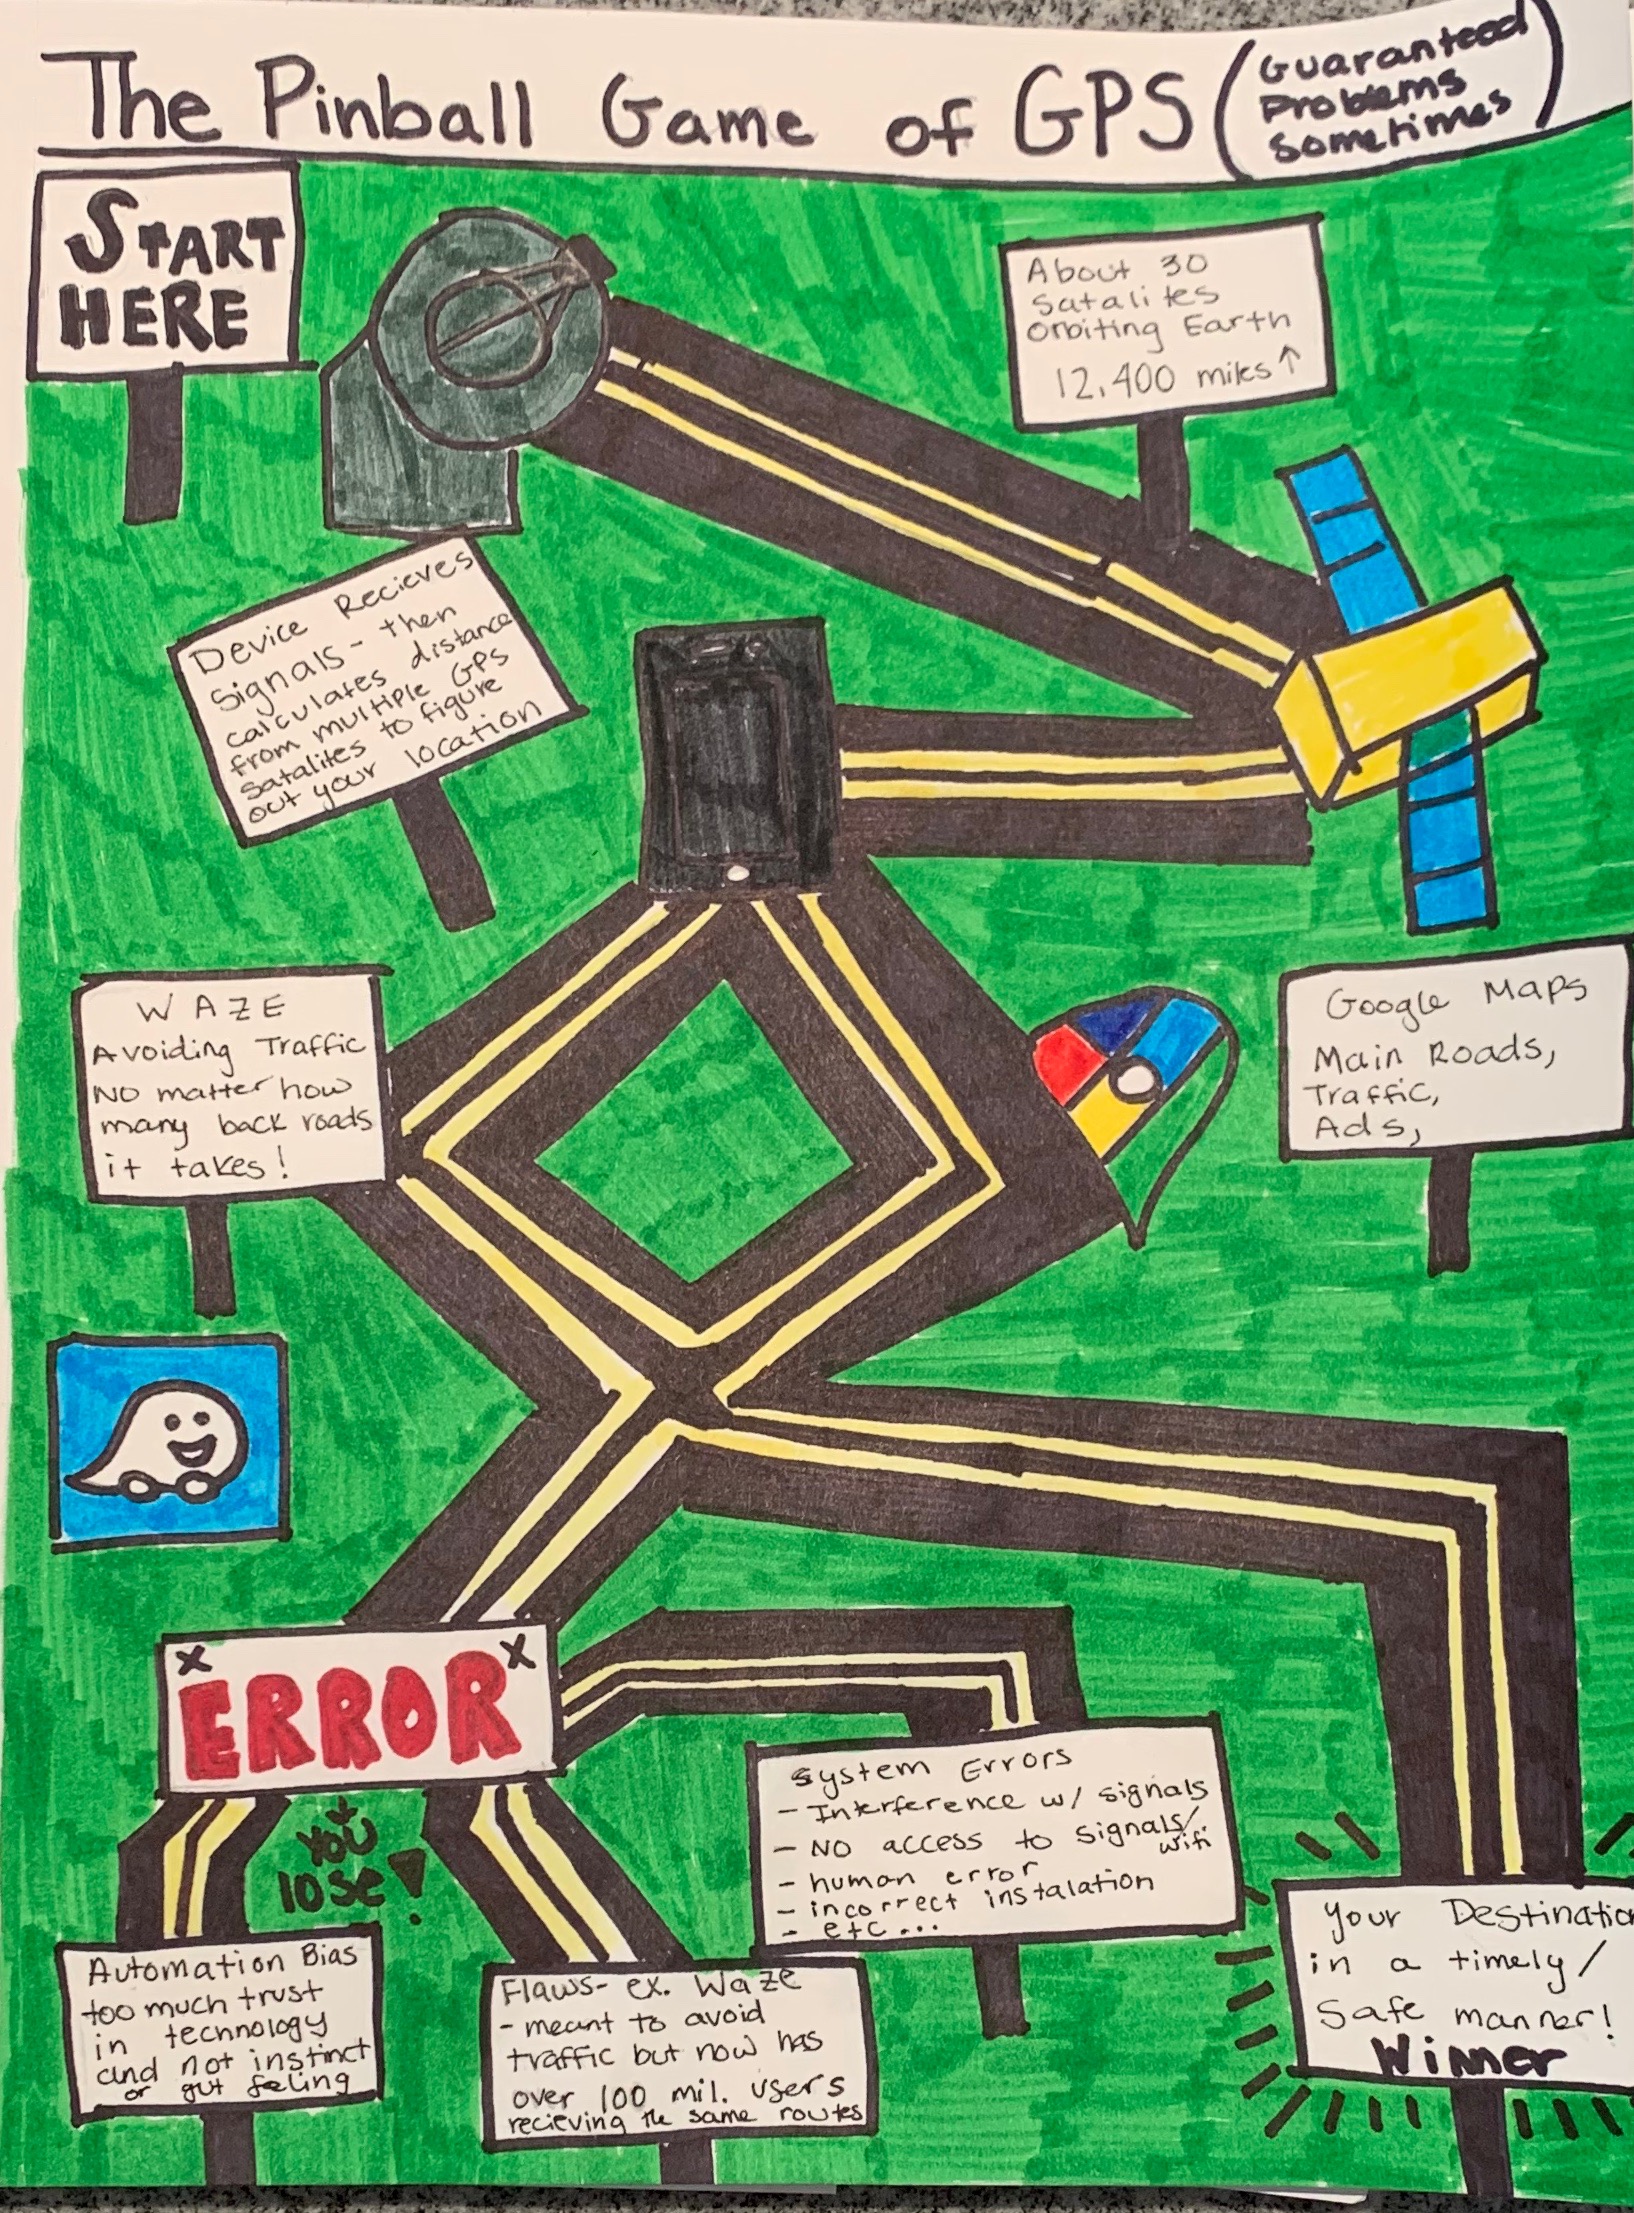 The Pinball Game of GPS (Guaranteed
Problems
Sometimes)
START
HERE
About 30
Satalites
Orbiting Earth
12,400 miles ↑
Device Recieves
Signals - then
calculates distance
from multiple GPS
Satalites to figure
out your location
WAZE
Avoiding Traffic
No matter how
many back roads
it takes!
Google Maps
Main Roads,
Traffic,
Ads,
x ERROR x
You
lose!
System Errors
- Interference w/ signals
- No access to signals/
wifi
- human error
- incorrect instalation
- etc...
Automation Bias
too much trust
in technology
and not instinct
or gut feling
Flaws- ex. Waze
- meant to avoid
traffic but now has
over 100 mil. users
recieving the same routes
Your Destination
in a timely/
Safe manner!
Winner